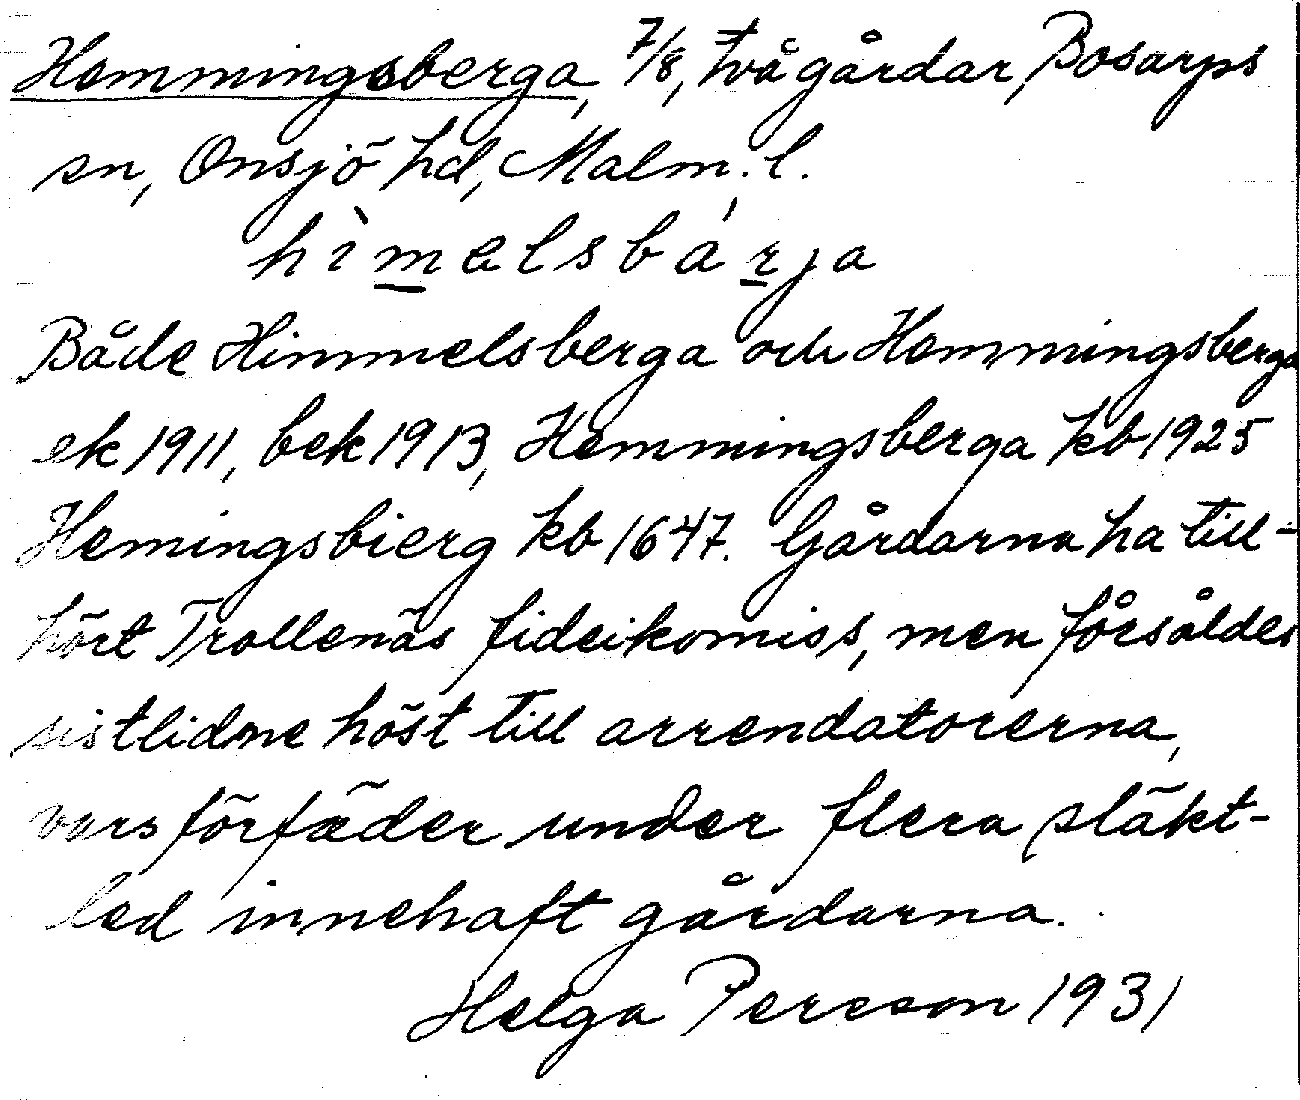 Hemmingsberga, 7/8, två gårdar, Bosarps
sn, Onsjö hd, Malm. l.
hìmelsbárja
Både Himmelsberga och Hemmingsberga
ek 1911, bek 1913, Hemmingsberga kb 1925
Hemingsbierg kb 1647. Gårdarna ha till-
hört Trollenäs fideikomiss, men försåldes
sistlidne höst till arrendatorerna,
vars förfäder under flera släkt-
led innehaft gårdarna.
Helga Persson 1931